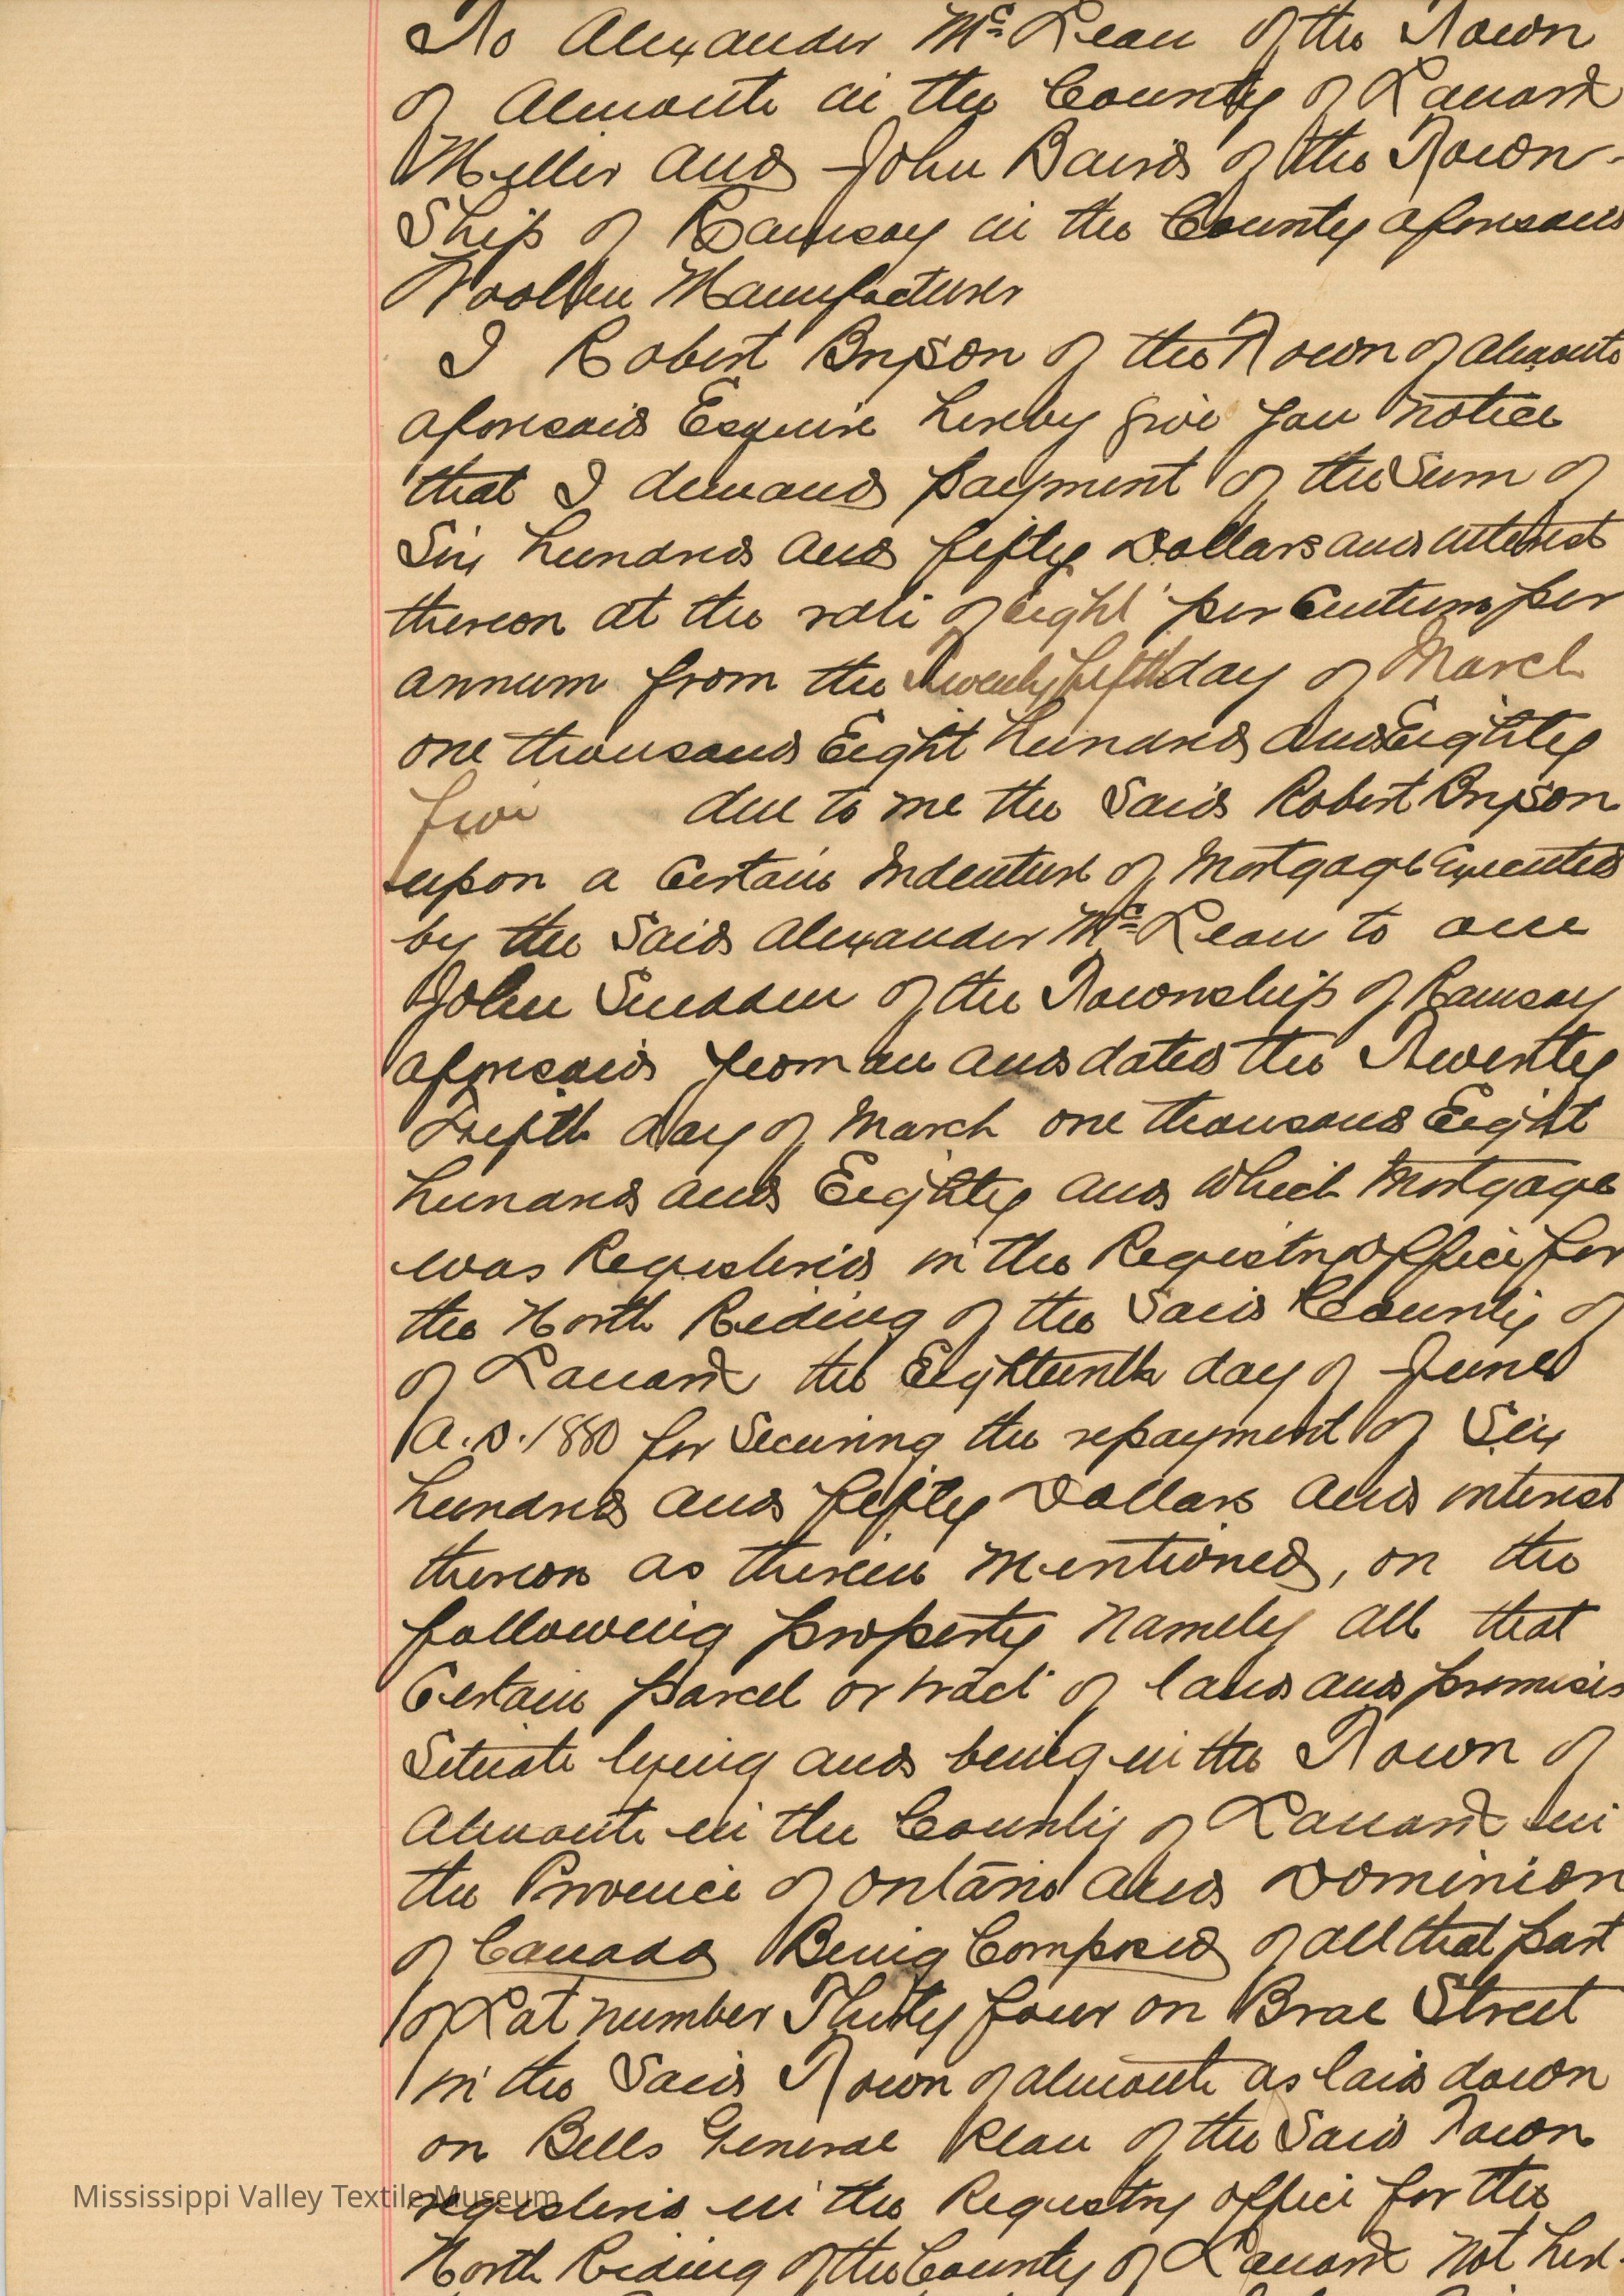 To Alexander McLean of the Town
of Almonte in the County of Lanark
Miller and John Baird of the Town-
Ship of Ramsay in the County aforesaid
Woollen Manufacturer
I Robert Bryson of the Town of Almonte
aforesaid Esquire hereby give you notice
that I demand payment of the Sum of
Six hundred and fifty Dollars and interest
thereon at the rate of eight per Centum per
annum from the Twenty fifth day of March
one thousand Eight hundred and Eighty
five due to me the Said Robert Bryson
upon a Certain Indenture of Mortgage Executed
by the Said Alexander McLean to one
John Snedden of the Township of Ramsay
aforesaid yeoman and dated the Twenty
Fifth day of March one thousand Eight
hundred and Eighty and which Mortgage
was Registered in the Registry Office for
the North Riding of the Said County of
of Lanark the Eighteenth day of June
A.D. 1880 for Securing the repayment of Six
hundred and fifty Dollars and interest
thereon as therein mentioned, on the
following property namely all that
Certain parcel or tract of land and premises
Situate lying and being in the Town of
Almonte in the County of Lanark in
the Province of Ontario and Dominion
of Canada Being Composed of all that part
of Lot number Thirty four on Brae Street
in the Said Town of Almonte as laid down
on Bells General Plan of the Said Town
registered in the Registry office for the
North Riding of the County of Lanark not her-
Mississippi Valley Textile Museum